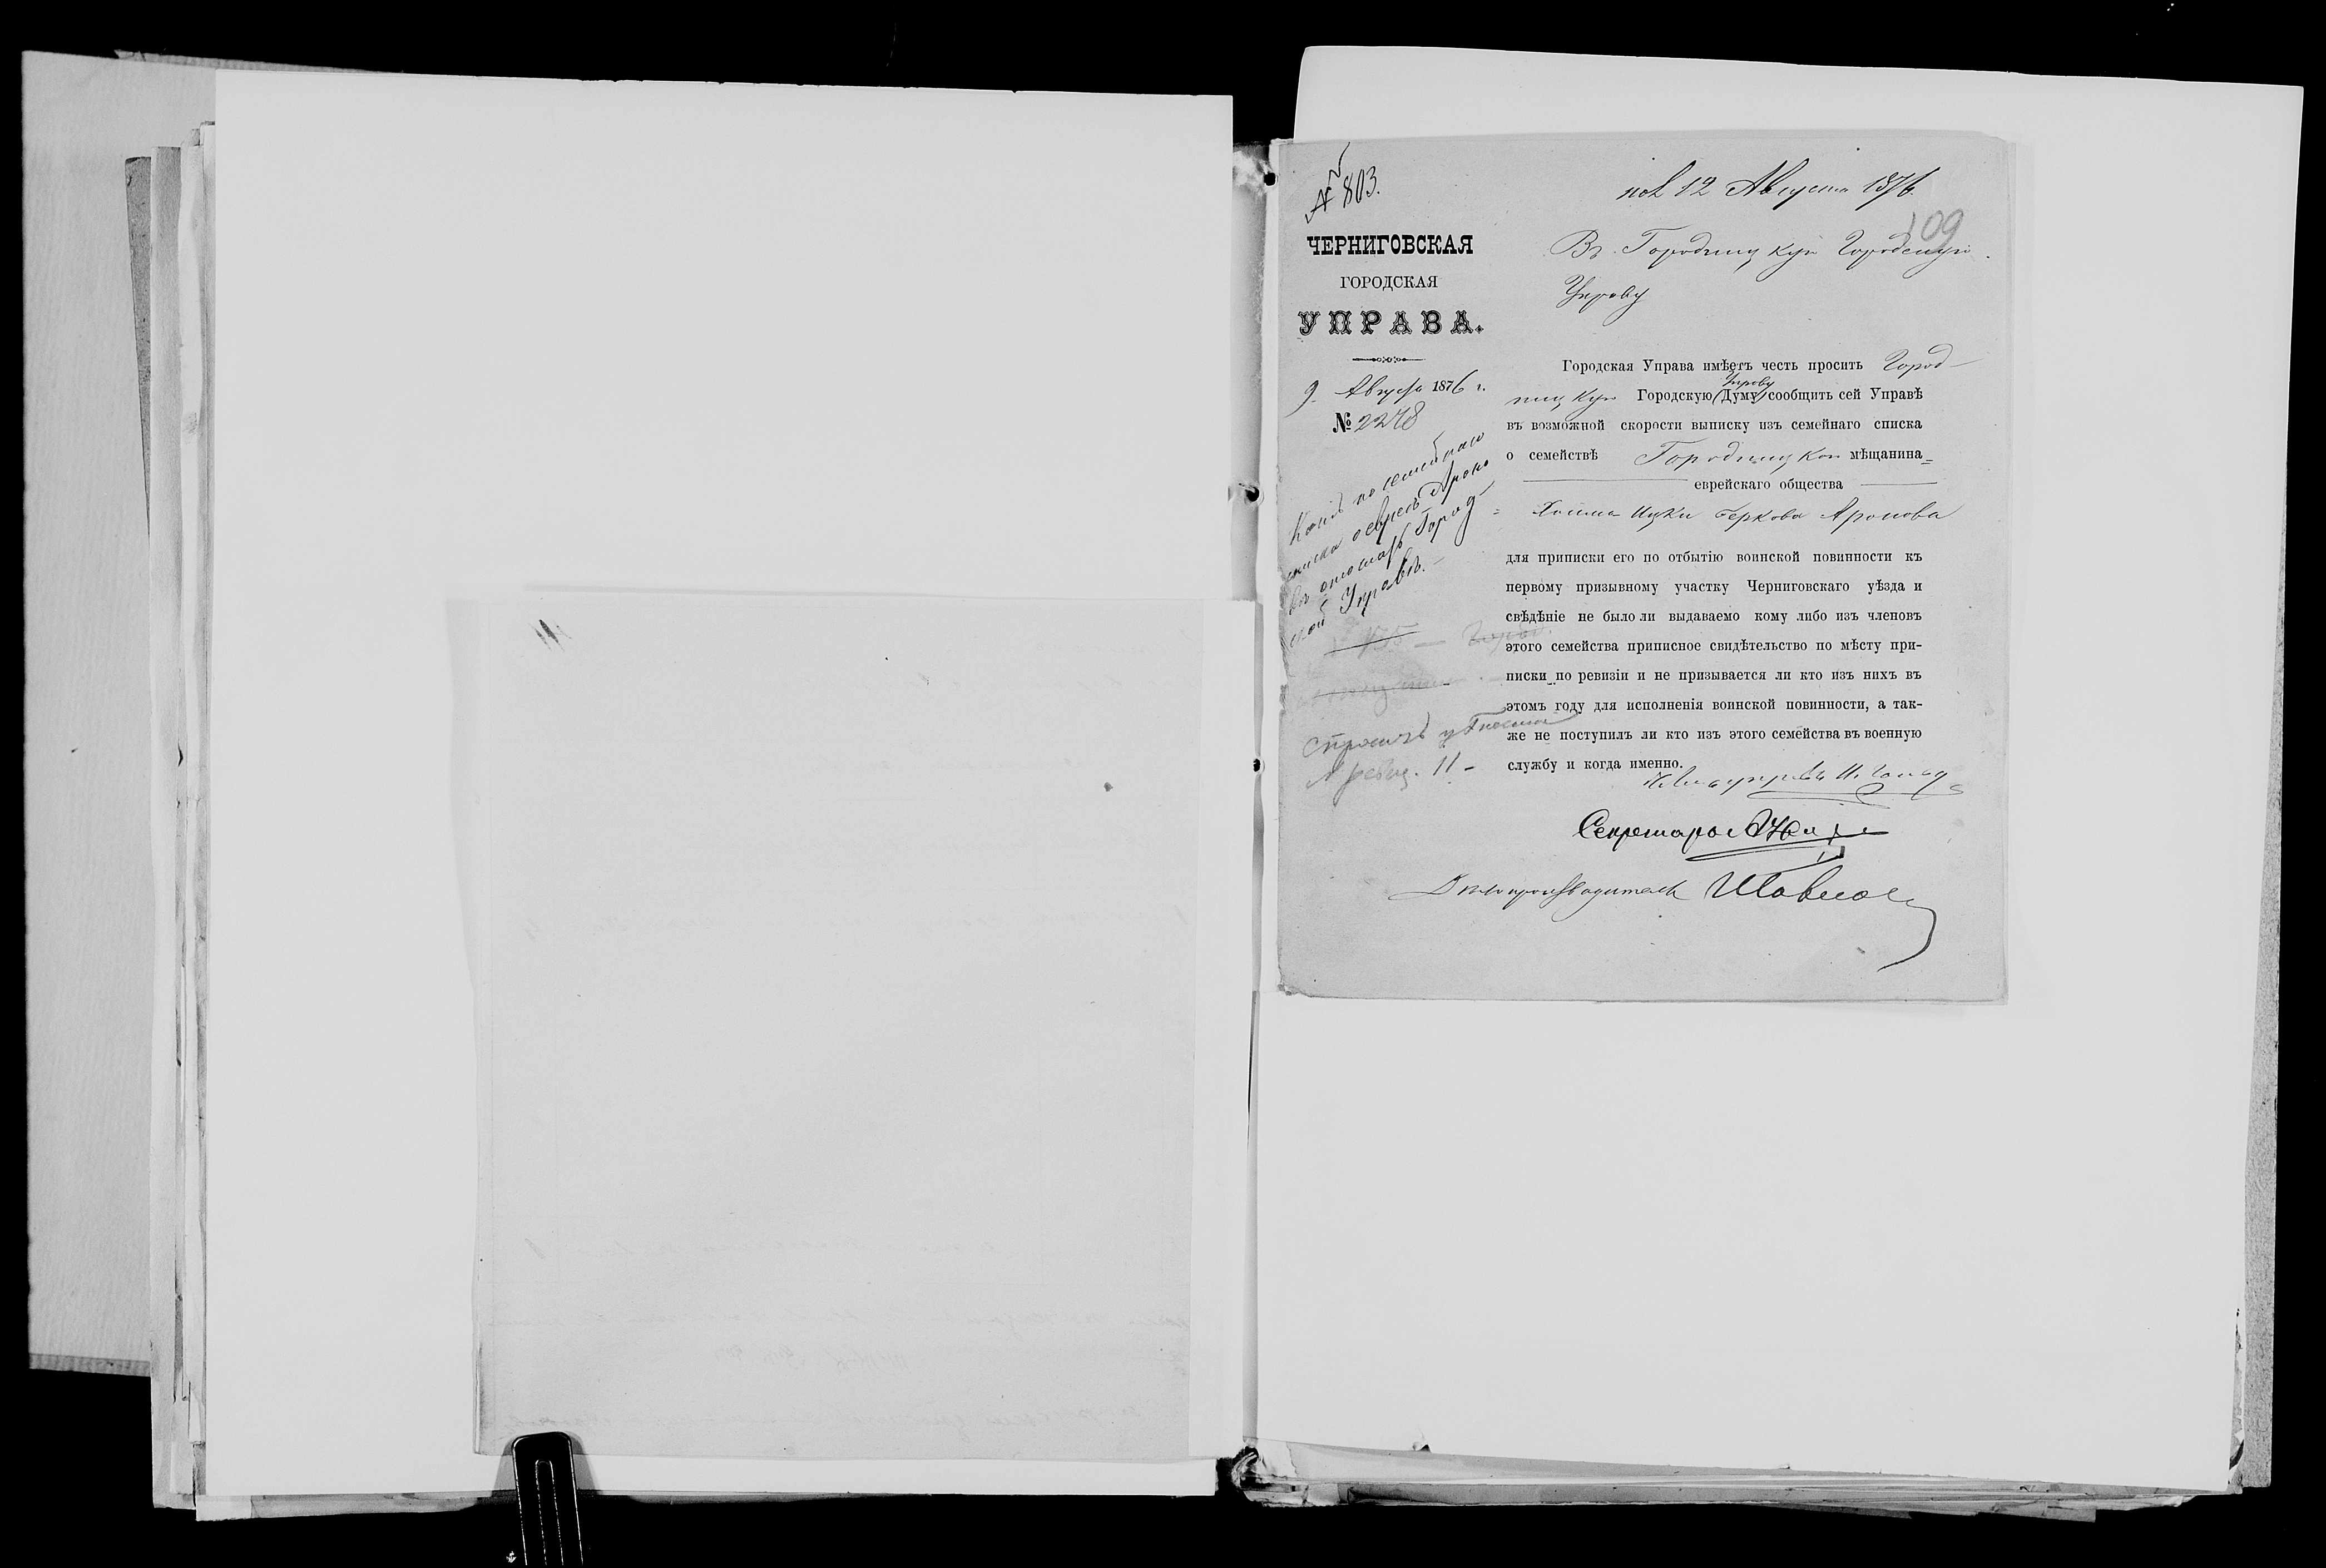 № 803.
пол 12 Августа 1876.
109
ЧЕРНИГОВСКАЯ
ГОРОДСКАЯ
УПРАВА.
9 Августа 1876 г.
№ 2278
Въ Городницкую Городскую
Управу
Городская Управа имѣетъ честь просить Город-
ницкую Городскую (Думу) Управу сообщить сей Управѣ
въ возможной скорости выписку изъ семейнаго списка
о семействѣ Городницкого мѣщанина=
еврейскаго общества
= Хаима Ицки Беркова Аронова
для приписки его по отбытію воинской повинности къ
первому призывному участку Черниговскаго уѣзда и
свѣдѣніе не было ли выдаваемо кому либо изъ членовъ
этого семейства приписное свидѣтельство по мѣсту при-
писки по ревизіи и не призывается ли кто изъ нихъ въ
этомъ году для исполненія воинской повинности, а так-
же не поступилъ ли кто изъ этого семейства въ военную
службу и когда именно.
Секретарь
Дѣлопроизводитель
Копію посемейнаго
списка о евреѣ Ароно
въ Город-
ской Управѣ.
Спросить у
11 -